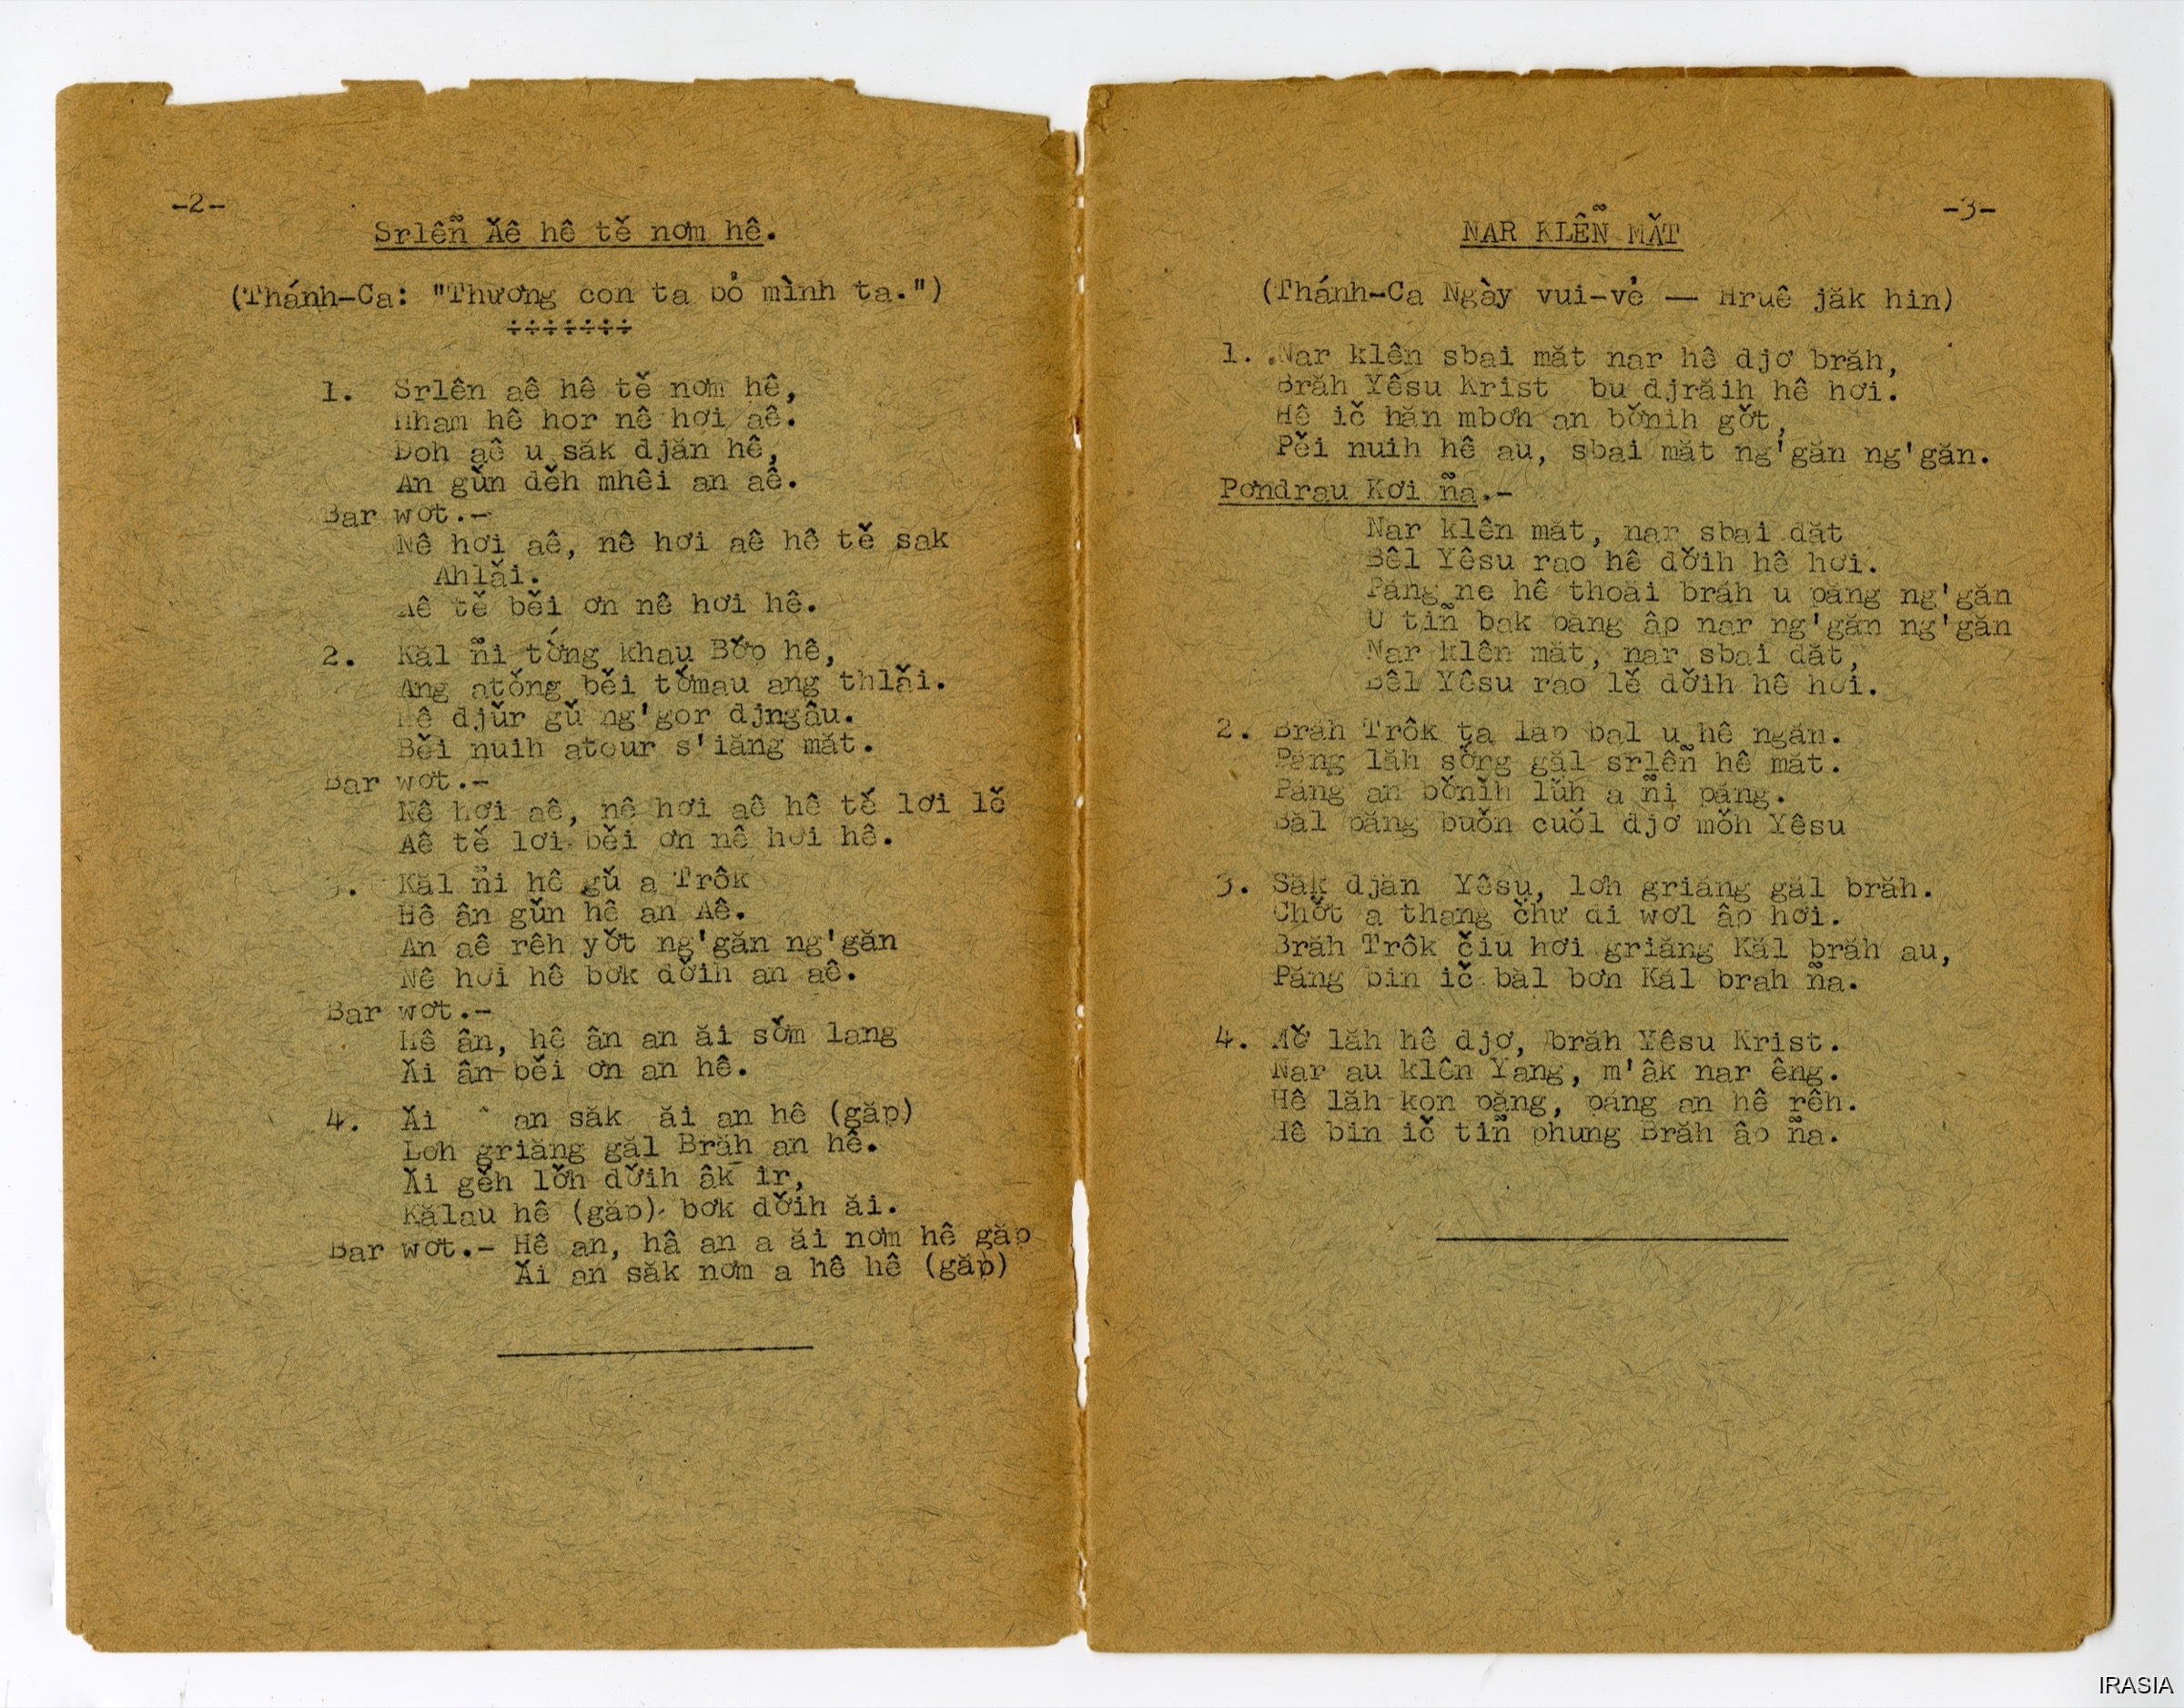 -2-
Srlêñ Ăê hê tě nơm hê.
(Thánh-Ca: "Thương con ta bỏ mình ta.")
÷÷÷÷÷÷÷
1. Srlên aê hê tě nơm hê,
Nham hê hor nê hơi aê.
Doh aê u săk djăn hê,
An gǔn děh mhêi an aê.
Bar wơt.-
Nê hơi aê, nê hơi aê hê tě sak
Ahlăi.
Aê tě běi ơn nê hơi hê.
2. Kăl ñi tớng khau Bơ̆p hê,
Ang atóng běi tơ̆mau ang thlăi.
Hê djǔr gǔ ng'gor djngâu.
Běi nuih atour s'iăng măt.
Bar wơt.-
Nê hơi aê, nê hơi aê hê tě lơi lě
Aê tě lơi běi ơn nê hơi hê.
3. Kăl ñi hê gǔ a Trôk
Hê ân gǔn hê an Aê.
An aê rêh yơ̆t ng'găn ng'găn
Nê hơi hê bơk dơ̆ih an aê.
Bar wơt.-
Hê ân, hê ân an ăi sơ̆m lang
Ăi ân běi ơn an hê.
4. Ăi an săk ăi an hê (găp)
Lơh griăng găl Brăh an hê.
Ăi gěh lơ̆h dơ̆ih âk ir,
Kălau hê (găp) bơk dơ̆ih ăi.
Bar wơt.- Hê an, hâ an a ăi nơm hê găp
Ăi an săk nơm a hê hê (găp)
-3-
NAR KLÊÑ MĂT
(Thánh-Ca Ngày vui-vẻ — Hruê jăk hin)
1. Nar klên sbai măt nar hê djơ brăh,
Brăh Yêsu Krist bu djrăih hê hơi.
Hê ič hăn mbơh an bơ̆nih gơ̆t,
Pěi nuih hê au, sbai măt ng'găn ng'găn.
Pơndrau Kơi ña.-
Nar klên măt, nar sbai dăt
Bêl Yêsu rao hê dơ̆ih hê hơi.
Păng ne hê thoăi brăh u păng ng'găn
U tiñ bak păng âp nar ng'găn ng'găn
Nar klên măt, nar sbai dăt,
Bêl Yêsu rao lě dơ̆ih hê hơi.
2. Brăh Trôk ta lap bal u hê ngăn.
Păng lăh sơ̆ng găl srlêñ hê măt.
Păng an bơ̆nih lǔh a ñi păng.
Băl păng buǒn cuǒl djơ mǒh Yêsu
3. Săk djăn Yêsu, lơh griăng găl brăh.
Chơ̆t a thang čhư di wơl âp hơi.
Brăh Trôk čiu hơi griăng Kăl brăh au,
Păng bin ič băl bơn Kăl brah ña.
4. Mơ̆ lăh hê djơ, brăh Yêsu Krist.
Nar au klên Yang, m'âk nar êng.
Hê lăh kon păng, păng an hê rêh.
Hê bin ič tiñ phung Brăh âp ña.
IRASIA